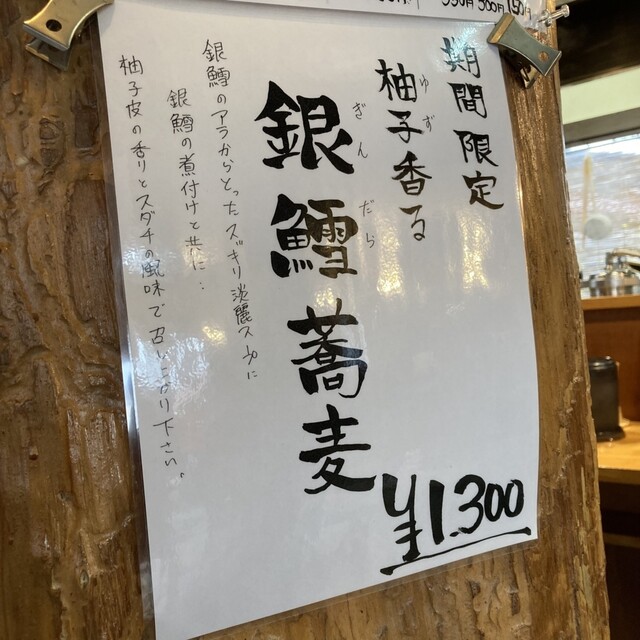 期間限定
柚子香る
ゆず
銀鱈蕎麦
ぎんだら
銀鱈のアラからとったスッキリ淡麗スープに
銀鱈の煮付けと共に…
柚子皮の香りとスダチの風味で召し上がり下さい。
¥1.300